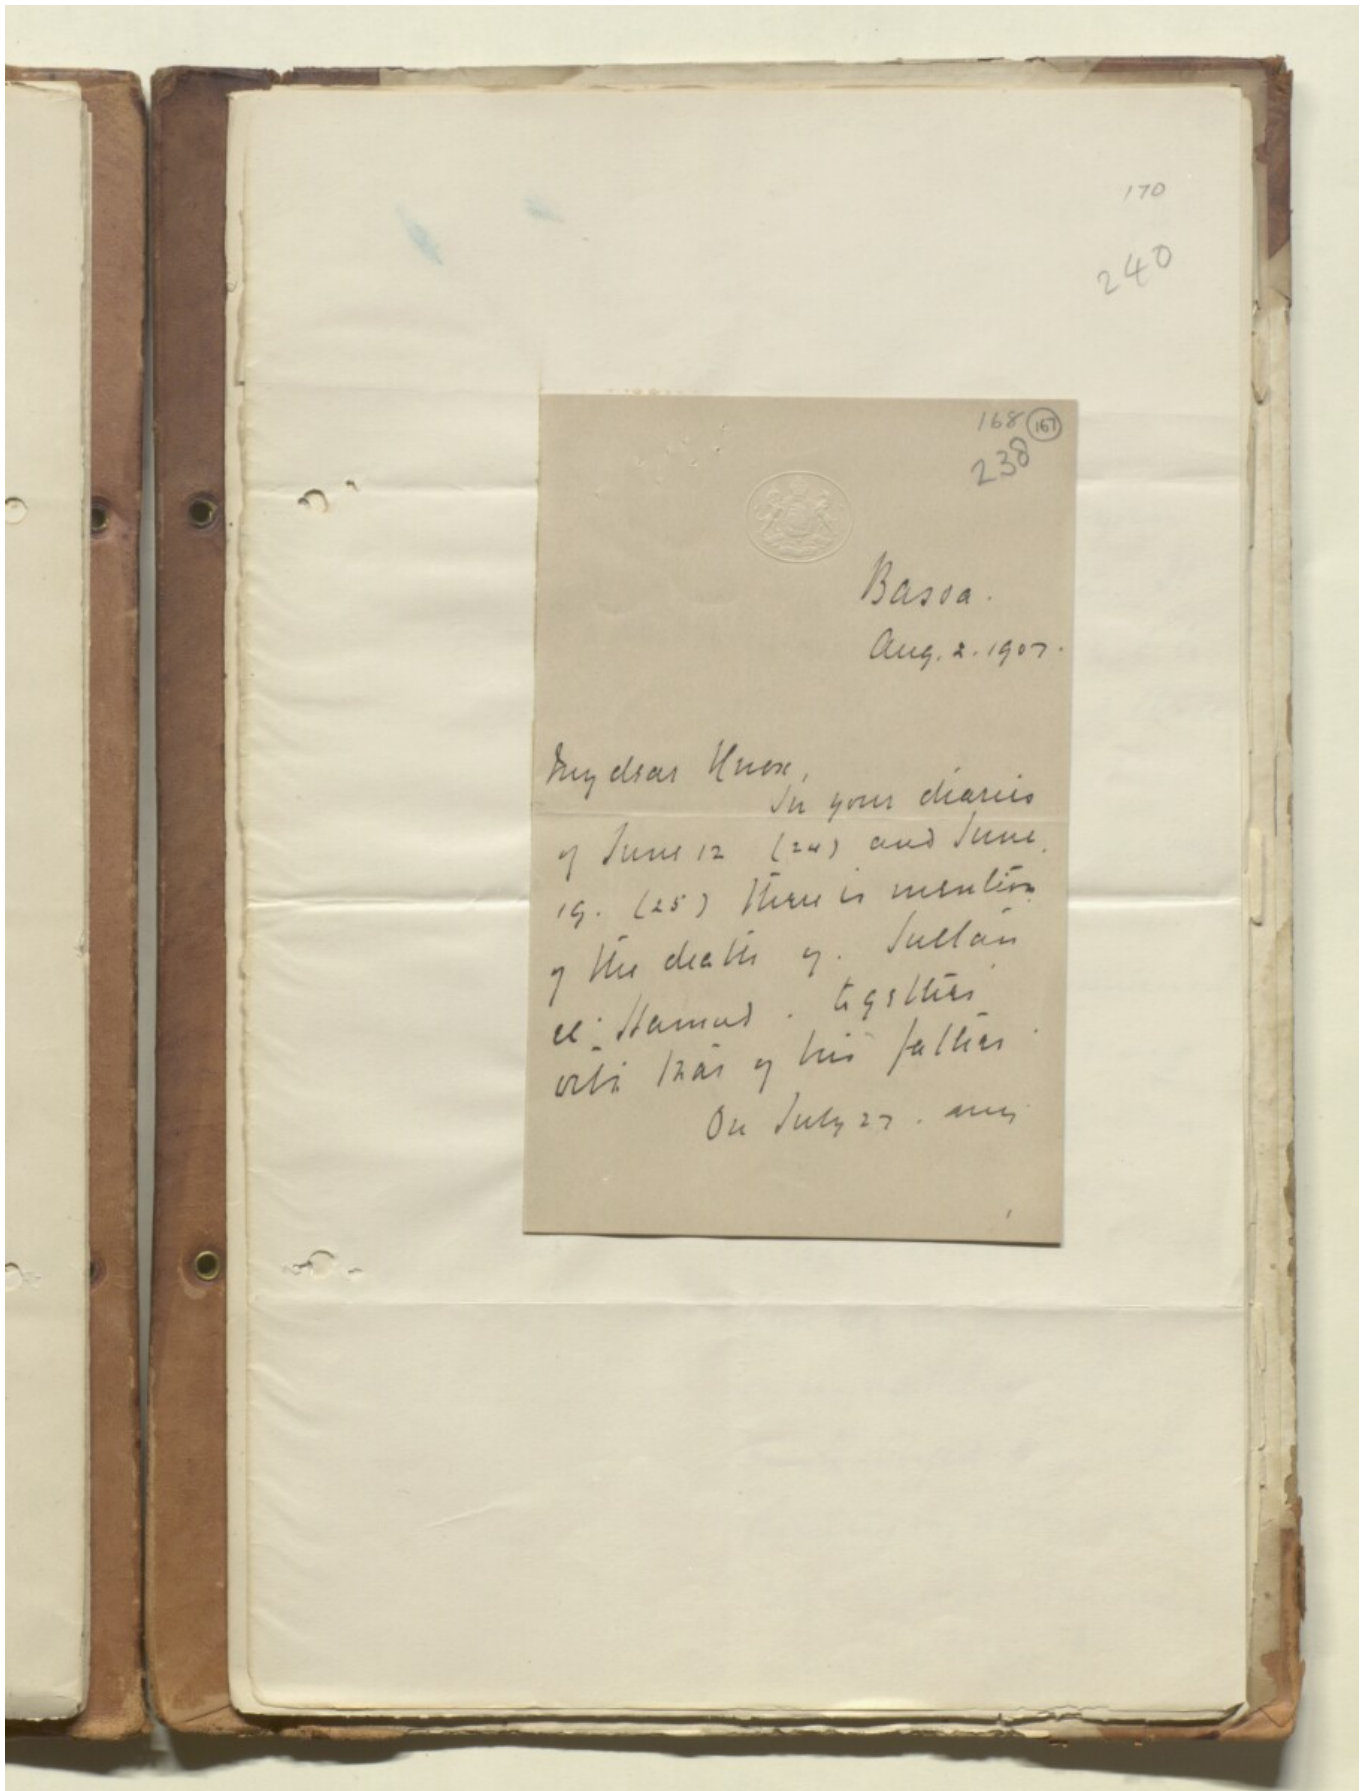 170
240
168 167
238
Basra.
Aug. 2. 1907.
My dear Knox,
In your diaries
of June 12 (24) and June
19. (25) there is mention
of the death of. Sultan
el Hamud. together
with that of his father.
On July 27. my